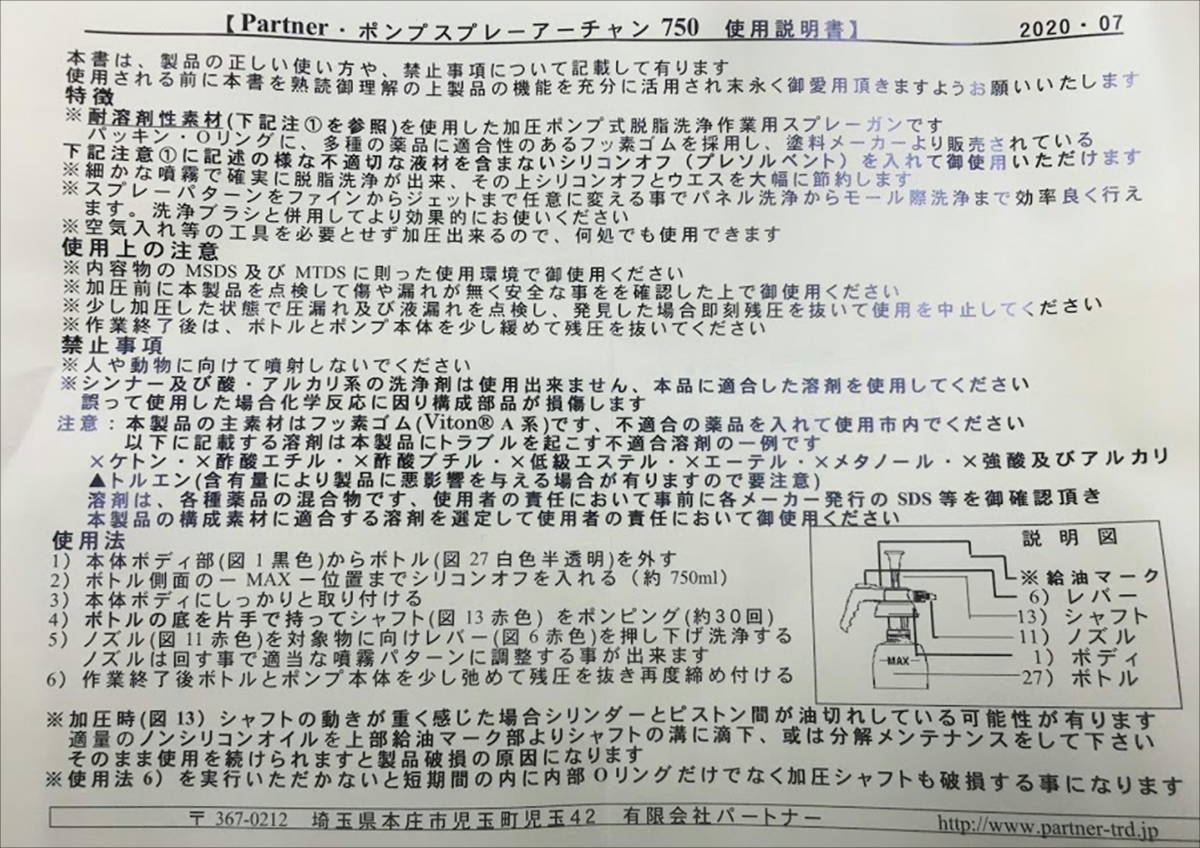 【Partner・ポンプスプレーアーチャン 750　使用説明書】　2020・07
本書は、製品の正しい使い方や、禁止事項について記載して有ります
使用される前に本書を熟読御理解の上製品の機能を充分に活用され末永く御愛用頂きますようお願いいたします
特徴
※耐溶剤性素材(下記注①を参照)を使用した加圧ポンプ式脱脂洗浄作業用スプレーガンです
パッキン・Oリングに、多種の薬品に適合性のあるフッ素ゴムを採用し、塗料メーカーより販売されている
下記注意①に記述の様な不適切な液材を含まないシリコンオフ（プレソルベント）を入れて御使用いただけます
※細かな噴霧で確実に脱脂洗浄が出来、その上シリコンオフとウエスを大幅に節約します
※スプレーパターンをファインからジェットまで任意に変える事でパネル洗浄からモール際洗浄まで効率良く行え
ます。洗浄ブラシと併用してより効果的にお使いください
※空気入れ等の工具を必要とせず加圧出来るので、何処でも使用できます
使用上の注意
※内容物の MSDS 及び MTDS に則った使用環境で御使用ください
※加圧前に本製品を点検して傷や漏れが無く安全な事をを確認した上で御使用ください
※少し加圧した状態で圧漏れ及び液漏れを点検し、発見した場合即刻残圧を抜いて使用を中止してください
※作業終了後は、ボトルとポンプ本体を少し緩めて残圧を抜いてください
禁止事項
※人や動物に向けて噴射しないでください
※シンナー及び酸・アルカリ系の洗浄剤は使用出来ません、本品に適合した溶剤を使用してください
誤って使用した場合化学反応に因り構成部品が損傷します
注意：本製品の主素材はフッ素ゴム(Viton® A 系)です、不適合の薬品を入れて使用市内でください
以下に記載する溶剤は本製品にトラブルを起こす不適合溶剤の一例です
×ケトン・×酢酸エチル・×酢酸ブチル・×低級エステル・×エーテル・×メタノール・×強酸及びアルカリ
▲トルエン(含有量により製品に悪影響を与える場合が有りますので要注意)
溶剤は、各種薬品の混合物です、使用者の責任において事前に各メーカー発行の SDS 等を御確認頂き
本製品の構成素材に適合する溶剤を選定して使用者の責任において御使用ください
使用法
1）本体ボディ部(図 1 黒色)からボトル(図 27 白色半透明)を外す
2）ボトル側面の－ MAX －位置までシリコンオフを入れる（約 750ml）
3）本体ボディにしっかりと取り付ける
4）ボトルの底を片手で持ってシャフト(図 13 赤色）をポンピング(約30回)
5）ノズル(図 11 赤色)を対象物に向けレバー(図 6 赤色)を押し下げ洗浄する
ノズルは回す事で適当な噴霧パターンに調整する事が出来ます
6）作業終了後ボトルとポンプ本体を少し弛めて残圧を抜き再度締め付ける
説明図
※給油マーク
6）レバー
13）シャフト
11）ノズル
1）ボディ
27）ボトル
MAX
※加圧時(図 13）シャフトの動きが重く感じた場合シリンダーとピストン間が油切れしている可能性が有ります
適量のノンシリコンオイルを上部給油マーク部よりシャフトの溝に滴下、或は分解メンテナンスをして下さい
そのまま使用を続けられますと製品破損の原因になります
※使用法 6）を実行いただかないと短期間の内に内部 O リングだけでなく加圧シャフトも破損する事になります
〒 367-0212　埼玉県本庄市児玉町児玉42　有限会社パートナー　http://www.partner-trd.jp